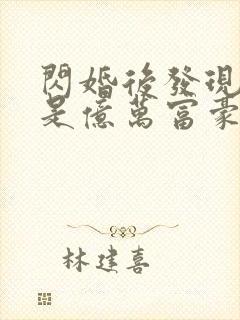 閃婚後發現
是億萬富豪
林建喜